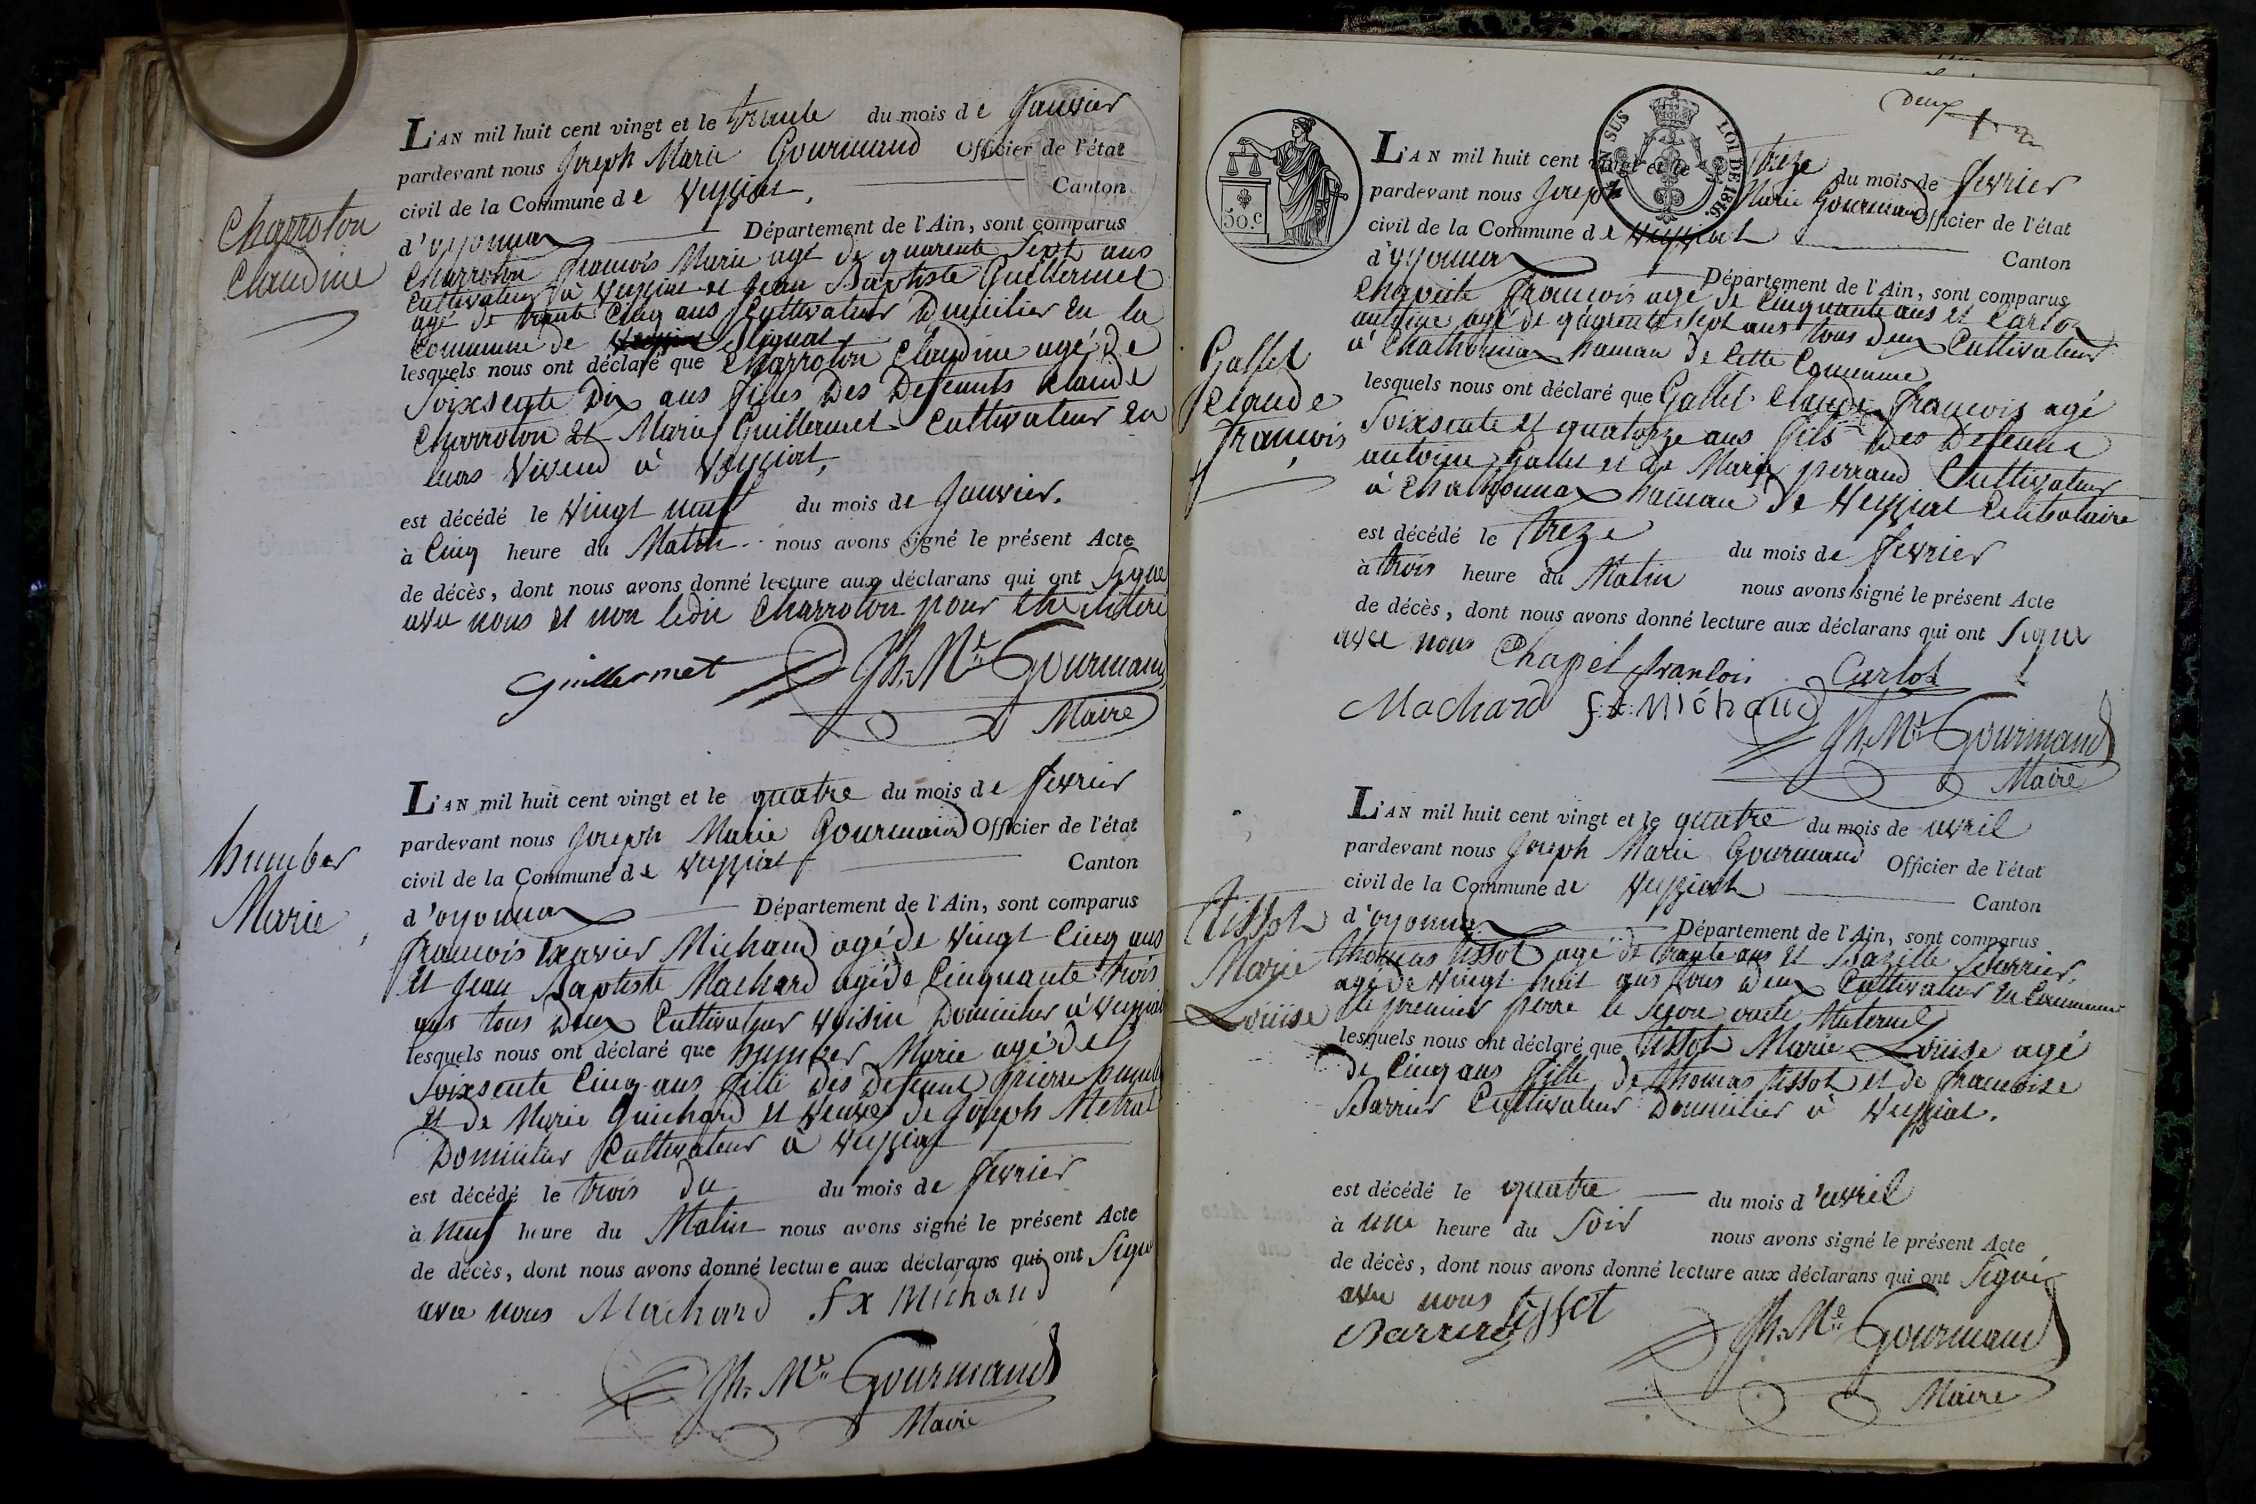 Charroton
Claudine
L'AN mil huit cent vingt et le trente du mois de Janvier
pardevant nous Joseph Marie Gourmand Officier de l'état
civil de la Commune de Veyziat, Canton
d'oyonnax Département de l'Ain, sont comparus
Charroton francois Marie agé de quarente Sept ans
Cultivateur à Veyziat et Jean Baptiste Guillermet
agé de trente Cinq ans Cultivateur Domicilier en la
Commune de
lesquels nous ont déclaré que Charroton Claudine agé de
Soixsente Dix ans filles Des Defeunts Claude
Charroton et Marie Guillermet Cultivateur en
leurs Vivend à Veyziat,
est décédé le Vingt neuf du mois de Janvier.
à Cinq heure du Matin nous avons signé le présent Acte
de décès, dont nous avons donné lecture aux déclarans qui ont Signé
avec nous et non ledit Charroton pour
Guillermet Jh. Mie Gourmand
Maire
humber
Marie,
L'AN mil huit cent vingt et le quatre du mois de fevrier
pardevant nous Joseph Marie Gourmand Officier de l'état
civil de la Commune de Veyziat Canton
d'oyonnax Département de l'Ain, sont comparus
francois Xavier Michaud agé de Vingt Cinq ans
et Jean Baptiste Machard agé de Cinquante trois
ans tous Deux Cultivateur Voisin Domicilier à Veyziat
lesquels nous ont déclaré que humber Marie agé de
Soixsente Cinq ans fille des Defeunt pierre humber
et de Marie Guichard et Veuve de Joseph Metral
Domicilier Cultivateur à Veyziat
est décédé le trois du du mois de fevrier
à Neuf heure du Matin nous avons signé le présent Acte
de décès, dont nous avons donné lecture aux déclarans qui ont Signé
avec nous Machard fx Michaud
Jh. Mie Gourmand
Maire
Deux
50.c
EN SUS LOI DE 1816.
Gallet
Claude
francois
L'AN mil huit cent vingt et le treze du mois de fevrier
pardevant nous Joseph Marie Gourmand Officier de l'état
civil de la Commune de Veyziat Canton
d'oyonnax Département de l'Ain, sont comparus
francois agé de Cinquante ans et Carlot
antoine agé de quarente Sept ans tous deux Cultivateur
à Chatonnax hamau de Cette Commune
lesquels nous ont déclaré que Gallet Claude francois agé
Soixsente et quatorze ans fils Des Defeunt
antoine Gallet et de Marie perraud Cultivateur
à Chatonnax hamau de Veyziat Celibataire
est décédé le treze du mois de fevrier
à trois heure du Matin nous avons signé le présent Acte
de décès, dont nous avons donné lecture aux déclarans qui ont Signé
avec nous Chapel franÇois Carlot
Machard f.x. Michaud
Jh. Mie Gourmand
Maire
Tissot
Marie
Louise
L'AN mil huit cent vingt et le quatre du mois de avril
pardevant nous Joseph Marie Gourmand Officier de l'état
civil de la Commune de Veyziat Canton
d'oyonnax Département de l'Ain, sont comparus
thomas tissot agé de trente ans et Bazille Barrier
agé de Vingt huit ans tous deux Cultivateur en Commune
le premier perre le Segon oncle Maternel
lesquels nous ont déclaré que tissot Marie Louise agé
de Cinq ans fille de thomas tissot et de francoise
Barrier Cultivateur Domicilier à Veyziat.
est décédé le quatre du mois d'avril
à une heure du Soir nous avons signé le présent Acte
de décès, dont nous avons donné lecture aux déclarans qui ont Signé
avec nous tissot
Barrier Jh. Mie Gourmand
Maire